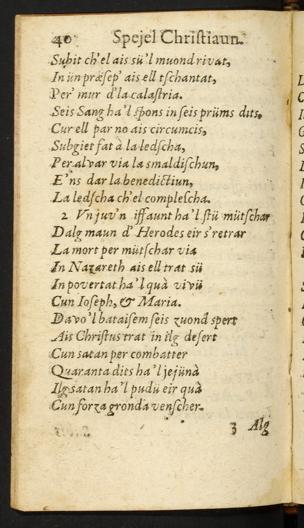 40 Spejel Chriſtiaun.
Subit ch'el ais sü'l muond rivat,
In ün præsep' ais ell tſchantat,
Per mur d'la calaſtria.
Seis Sang ha'l ſpons in ſeis prüms dits,
Cur ell par no ais circumcis,
Subgiet fat à la ledſcha,
Per alvar via la smaldiſchun,
E'ns dar la benedictiun,
La ledſcha ch'el compleſcha.
2 Vn juv'n iffaunt ha'l ſtü mütſchar
Dalg maun d' Herodes eir s'retrar
La mort per mütſchar via
In Nazareth ais ell trat sü
In povertat ha'l quà vivü
Cun Ioſeph, & Maria.
Davo'l bataiſem ſeis zuond spert
Ais Chriſtus trat in ilg deſert
Cun satan per combatter
Quaranta dits ha'l jejünà
Ilg satan ha'l pudü eir quà
Cun forza gronda venſcher.
3 Alg